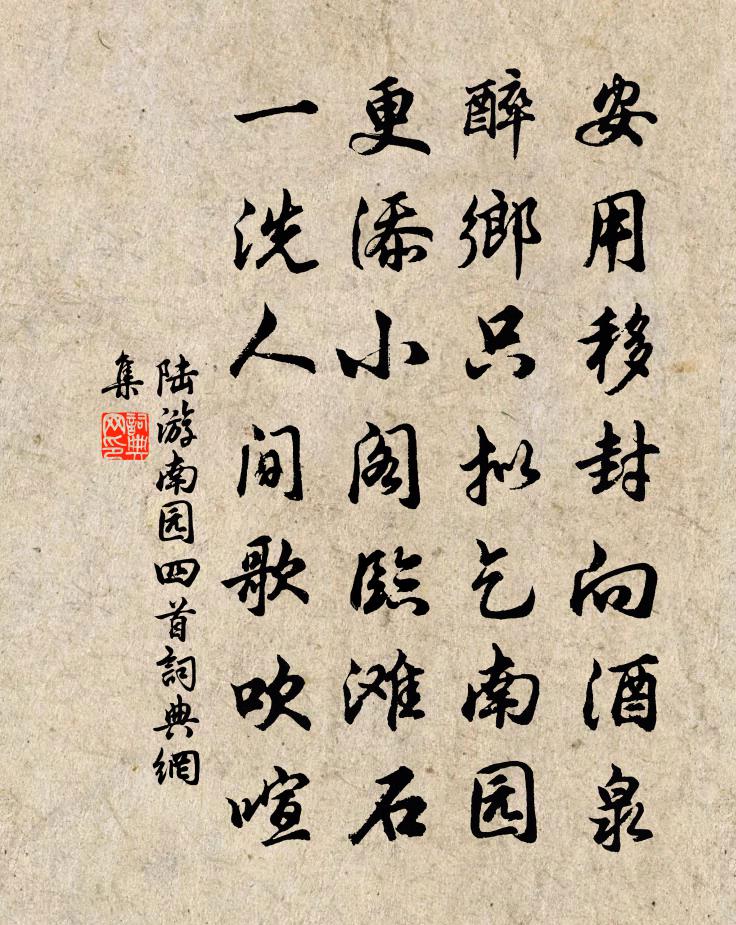 安用移封向酒泉
醉鄉只拟乞南园
更添小阁臨滩石
一洗人间歌吹喧
陆游南园四首詞典網
集
詞典
网印